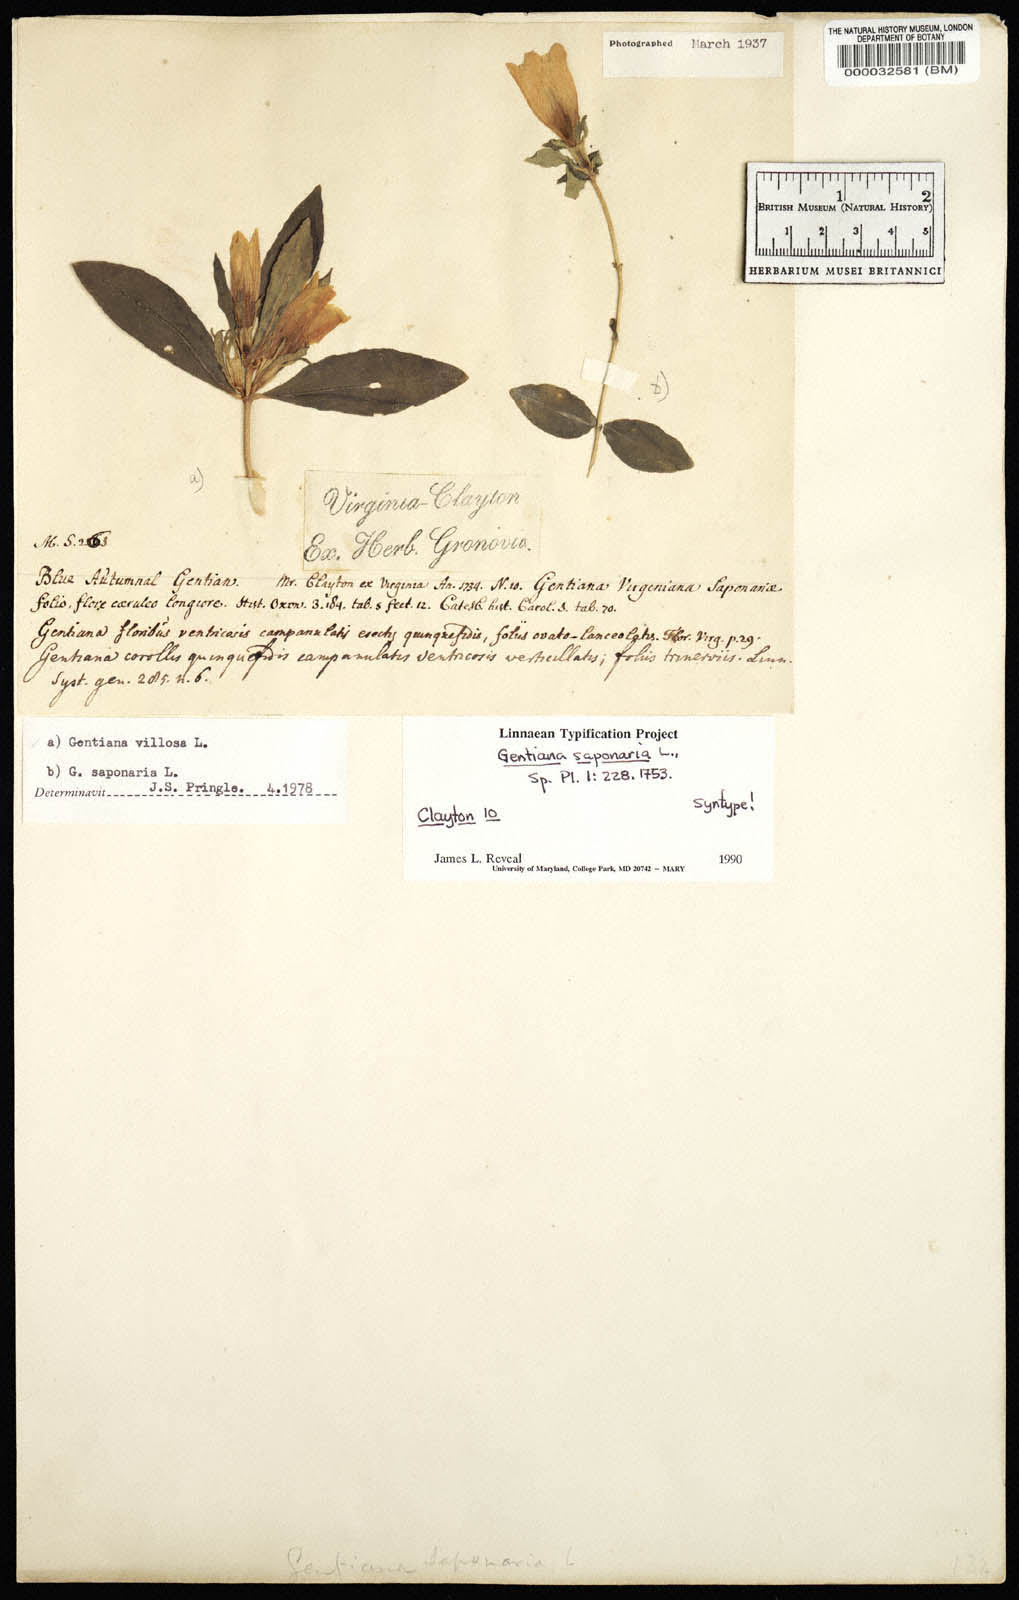 Photographed March 1937
THE NATURAL HISTORY MUSEUM, LONDON
DEPARTMENT OF BOTANY
000032581 (BM)
1 2
BRITISH MUSEUM (NATURAL HISTORY)
1 2 3 4 5
HERBARIUM MUSEI BRITANNICI
b)
a)
Virginia-Clayton
Ex. Herb. Gronovio.
M. S.
Blue Autumnal Gentian. Mr. Clayton ex Virginia An. 1734. N. 10. Gentiana Virginiana Saponariæ
folio, flore cæruleo longiore. Hist. Oxon. 3. 184. tab. 5 sect. 12. Catesb. hist. Carol. tab. 70.
Gentiana floribus ventricosis campanulatis erectis quinquefidis, foliis ovato-lanceolatis. Flor. Virg. p. 29.
Gentiana corollis quinquefidis campanulatis ventricosis verticillatis; foliis trinerviis. Linn.
Syst. gen. 285. n. 6.
a) Gentiana villosa L.
b) G. saponaria L.
Determinavit J.S. Pringle. 4.1978
Linnaean Typification Project
Gentiana saponaria L.,
Sp. Pl. 1: 228. 1753.
syntype!
Clayton 10
James L. Reveal 1990
University of Maryland, College Park, MD 20742 – MARY
Gentiana Saponaria L